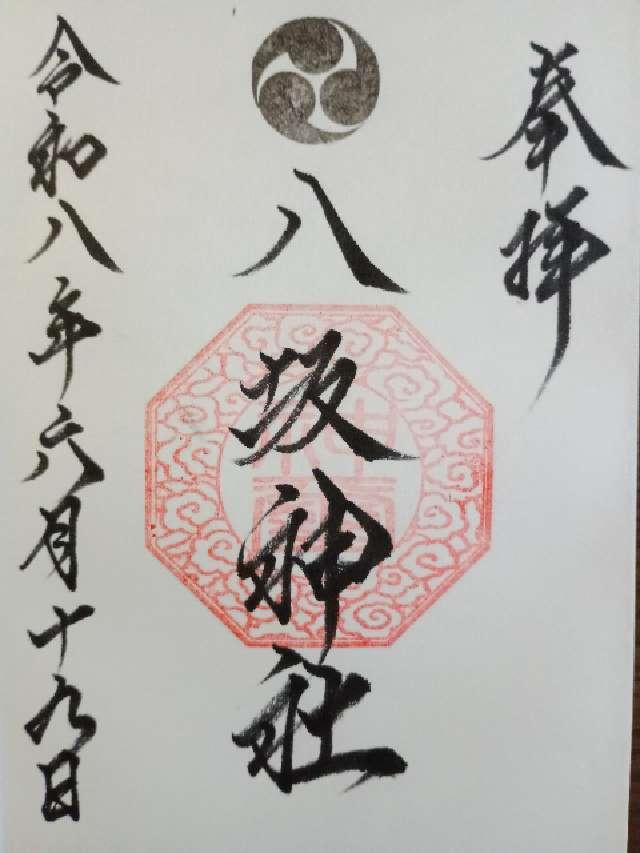 奉拝
八坂神社
令和八年六月十九日